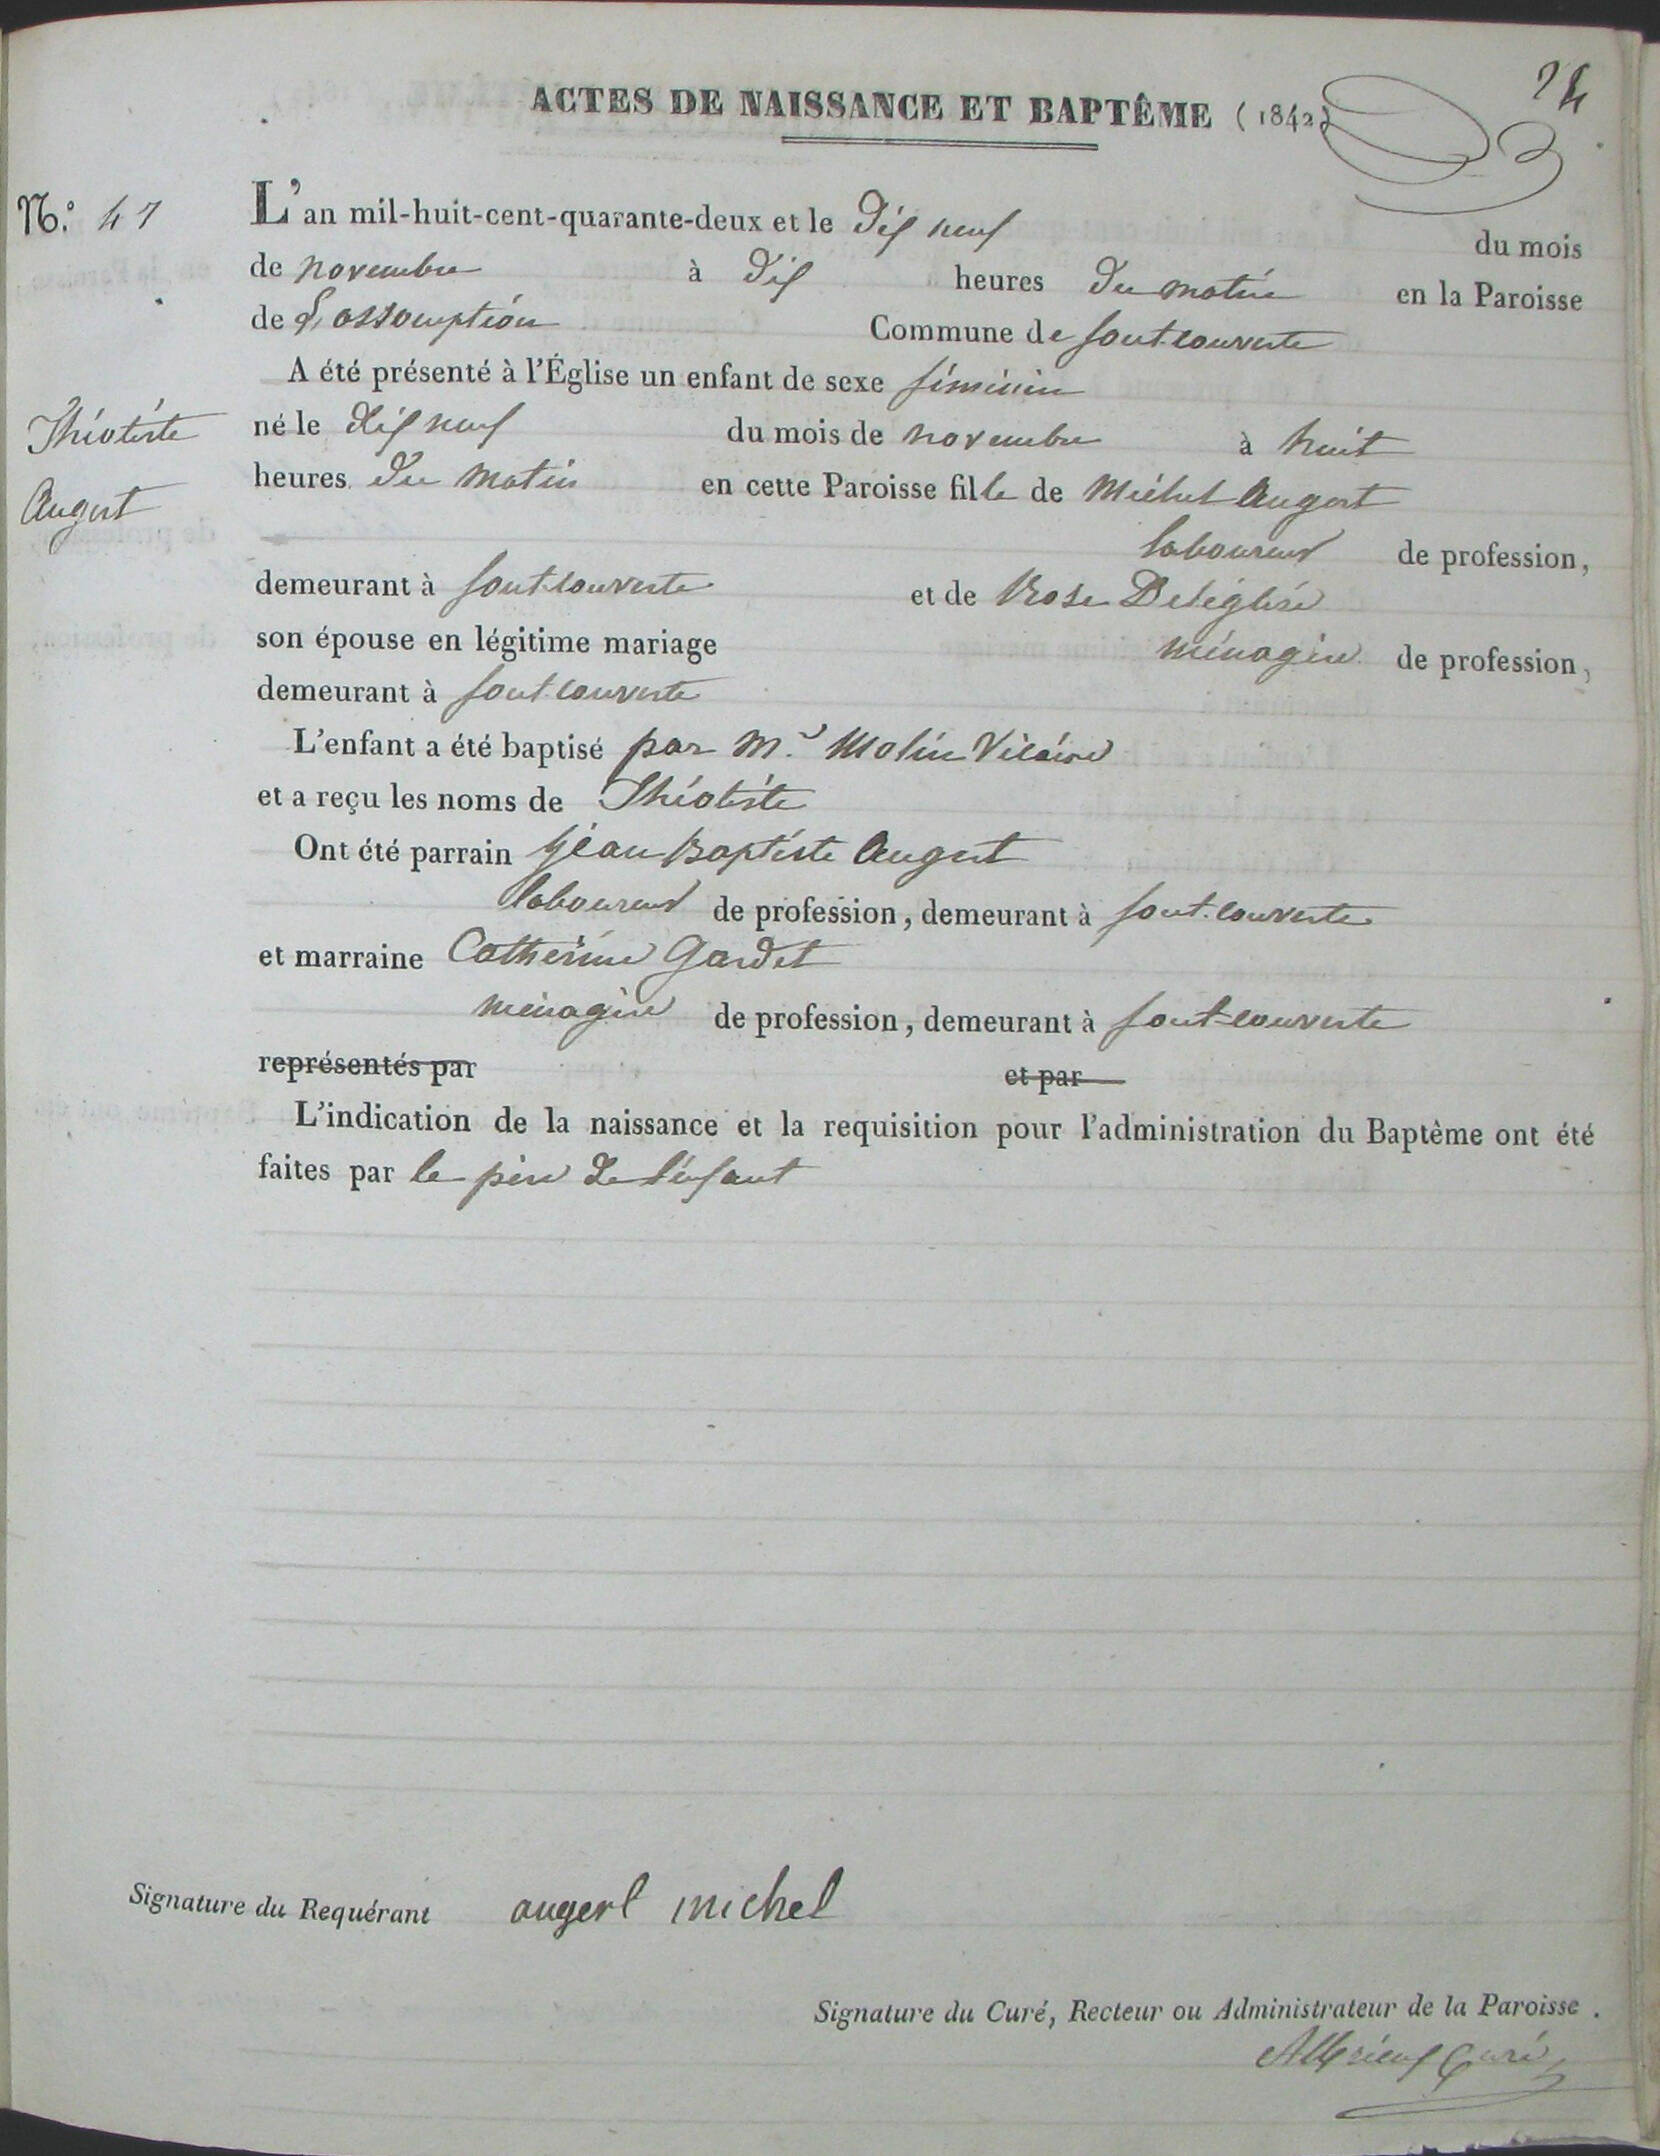 24
ACTES DE NAISSANCE ET BAPTÊME (1842)
N.o 47
L'an mil-huit-cent-quarante-deux et le dix neuf du mois
de novembre à dix heures du matin en la Paroisse
de L'assomption Commune de fontcouverte
A été présenté à l'Église un enfant de sexe féminin
Théotiste
Augert
né le dix neuf du mois de novembre à huit
heures du matin en cette Paroisse fille de Michel Augert
laboureur de profession,
demeurant à fontcouverte et de Rose Deléglise
son épouse en légitime mariage ménagère de profession,
demeurant à fontcouverte
L'enfant a été baptisé par Mr. Molin Vicaire
et a reçu les noms de Théotiste
Ont été parrain Jean Baptiste Augert
laboureur de profession, demeurant à font.couverte
et marraine Catherine Gardet
ménagère de profession, demeurant à font-couverte
représentés par et par
L'indication de la naissance et la requisition pour l'administration du Baptême ont été
faites par le père de l'enfant
Signature du Requérant augert michel
Signature du Curé, Recteur ou Administrateur de la Paroisse.
Albrieux Curé